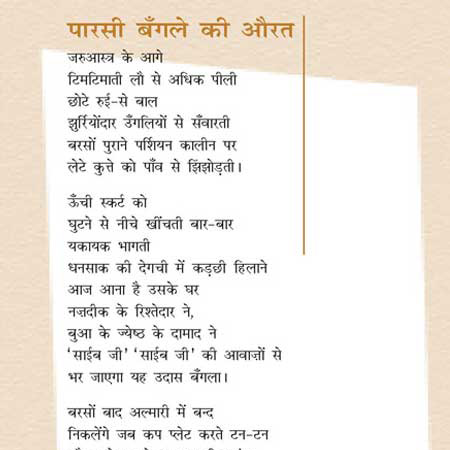 पारसी बँगले की औरत
जरुआस्त्र के आगे
टिमटिमाती लौ से अधिक पीली
छोटे रुई-से बाल
झुर्रियोंदार उँगलियों से सँवारती
बरसों पुराने पर्शियन कालीन पर
लेटे कुत्ते को पाँव से झिंझोड़ती।
ऊँची स्कर्ट को
घुटने से नीचे खींचती बार-बार
यकायक भागती
धनसाक की देगची में कड़छी हिलाने
आज आना है उसके घर
नज़दीक के रिश्तेदार ने,
बुआ के ज्येष्ठ के दामाद ने
‘साईब जी’ ‘साईब जी’ की आवाज़ों से
भर जाएगा यह उदास बँगला।
बरसों बाद अल्मारी में बन्द
निकलेंगे जब कप प्लेट करते टन-टन